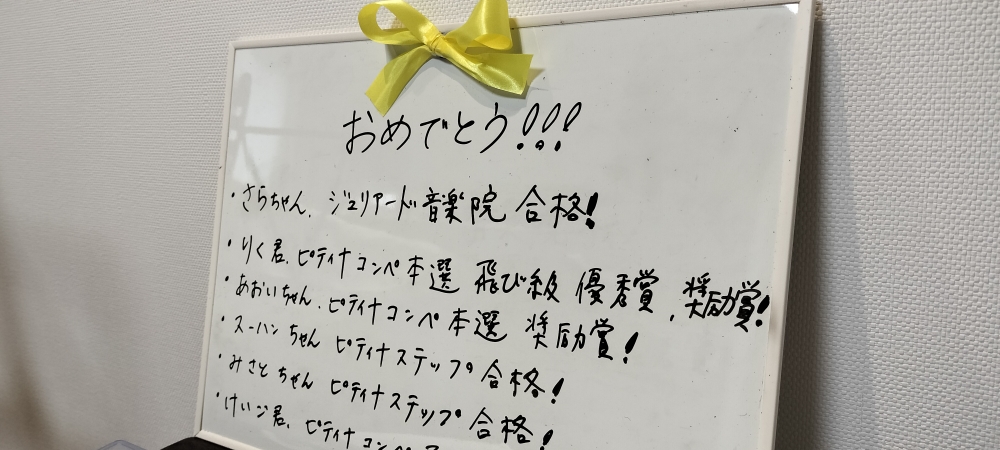 おめでとう!!!
・さらちゃん、ジュリアード音楽院 合格!
・りく君、ピティナコンペ本選 飛び級 優秀賞、奨励賞!
・あおいちゃん、ピティナコンペ本選 奨励賞!
・スーハンちゃん ピティナステップ合格!
・みさとちゃん ピティナステップ合格!
・けいご君、ピティナコンペ